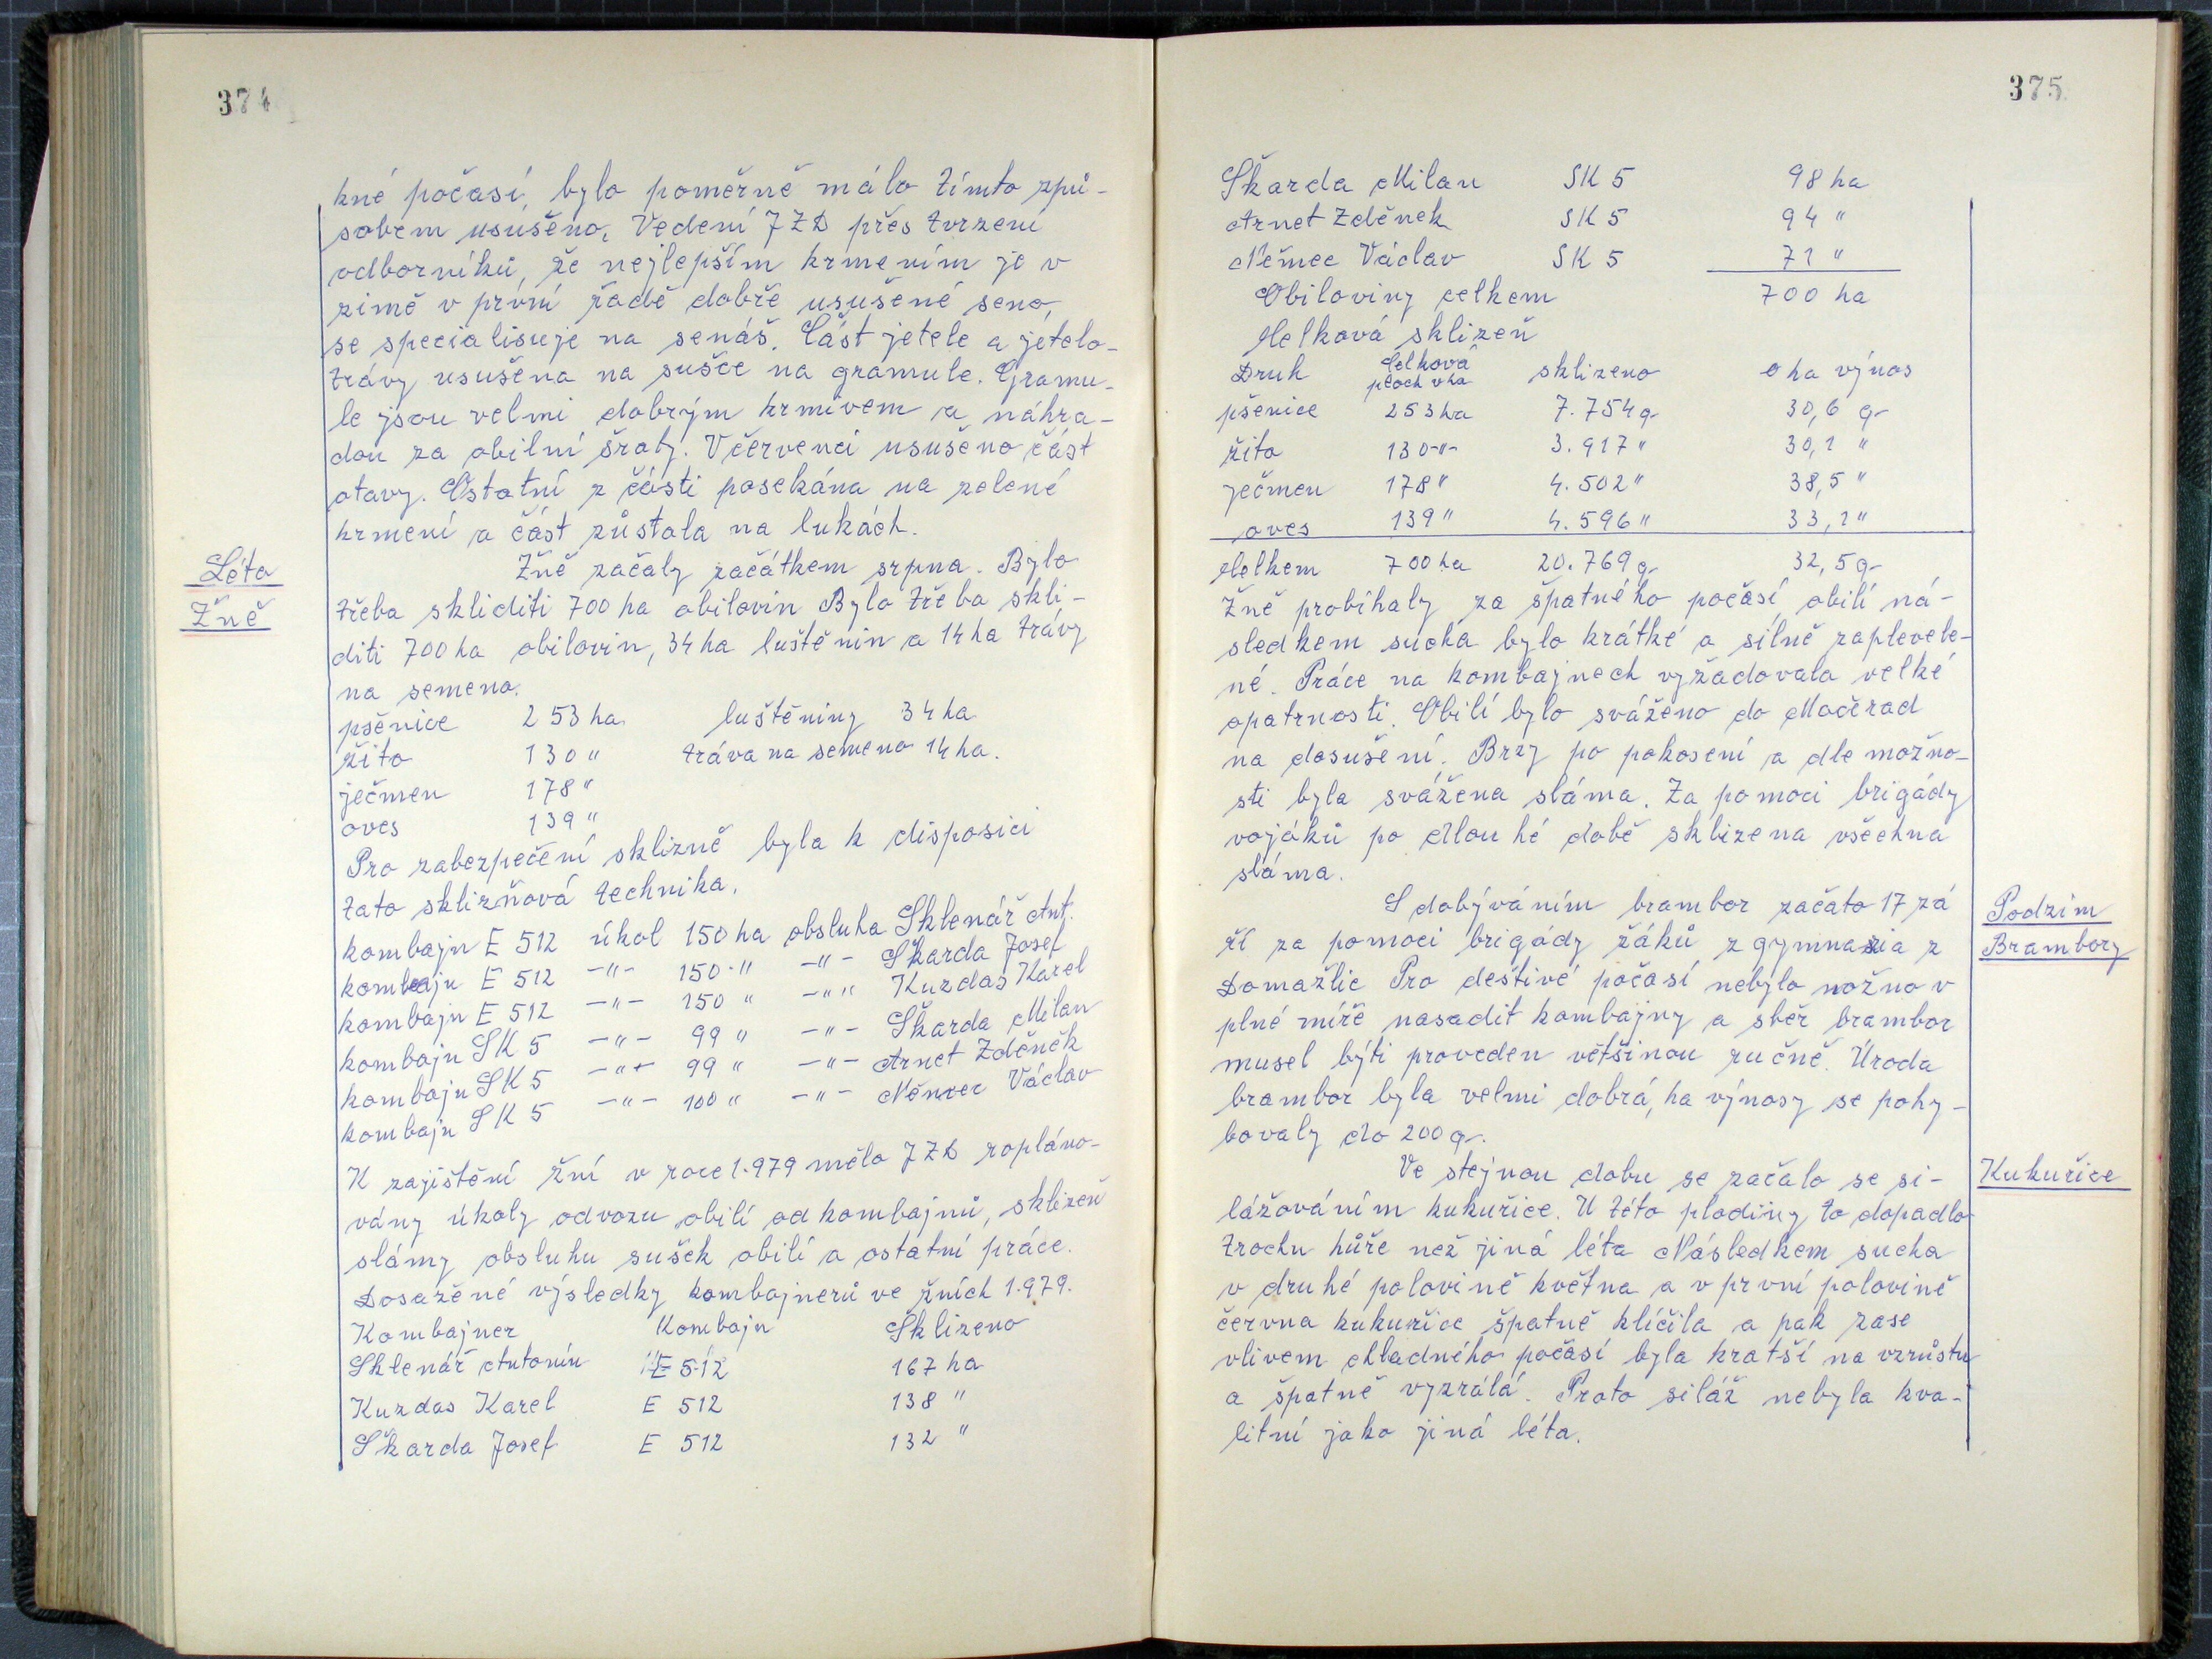 374
kné počasí, bylo poměrně málo tímto způ-
sobem usušeno. Vedení JZD přes tvrzení
odborníků, že nejlepším krmením je v
zimě v první řadě dobře usušené seno,
se specialisuje na senáš. Část jetele a jetelo-
trávy usušena na sušce na gramule. Gramu-
le jsou velmi dobrým krmivem a náhra-
dou za obilní šroty. V červenci usušeno část
otavy. Ostatní z části posekána na zelené
krmení a část zůstala na lukách.
Léto
Žně
Žně začaly začátkem srpna. Bylo
třeba skliditi 700 ha obilovin Bylo třeba skli-
diti 700 ha obilovin, 34 ha luštěnin a 14 ha trávy
na semeno.
pšenice 253 ha luštěniny 34 ha
žito 130 " tráva na semeno 14 ha.
ječmen 178 "
oves 139 "
Pro zabezpečení sklizně byla k disposici
tato sklizňová technika.
kombajn E 512 úkol 150 ha obsluha Sklenář Ant.
kombajn E 512 -"- 150 " -"- Škarda Josef
kombajn E 512 -"- 150 " -"- Kuzdas Karel
kombajn SK 5 -"- 99 " -"- Škarda Milan
kombajn SK 5 -"- 99 " -"- Arnet Zděněk
kombajn SK 5 -"- 100 " -"- Němec Václav
K zajištění žní v roce 1.979 mělo JZD zopláno-
vány úkoly odvozu obilí od kombajnů, sklizeň
slámy obsluhu sušek obilí a ostatní práce.
Dosažené výsledky kombajnerů ve žních 1.979.
Kombajner Kombajn Sklizeno
Sklenář Antonín E 512 167 ha
Kuzdas Karel E 512 138 "
Škarda Josef E 512 132 "
375
Škarda Milan SK 5 98 ha
Arnet Zděnek SK 5 94 "
Němec Václav SK 5 71 "
Obiloviny celkem 700 ha
Celková sklizeň
Druh Celková ploch v ha sklizeno o ha výnos
pšenice 253 ha 7.754 q 30,6 q
žito 130 -"- 3.917 " 30,1 "
ječmen 178 " 4.502 " 38,5 "
oves 139 " 4.596 " 33,1 "
Celkem 700 ha 20.769 q 32,5 q
Žně probíhaly za špatného počasí, obilí ná-
sledkem sucha bylo krátké a silně zaplevele-
né. Práce na kombajnech vyžadovala velké
opatrnosti. Obilí bylo sváženo do Močerad
na dosušení. Brzy po pokosení a dle možno-
sti byla svážena sláma. Za pomoci brigády
vojáků po dlouhé době sklizena všechna
sláma.
Podzim
Brambory
S dobýváním brambor začato 17 zá
ří za pomoci brigády žáků z gymnazia z
Domažlic Pro deštivé počasí nebylo možno v
plné míře nasadit kombajny a sběr brambor
musel býti proveden většinou ručně. Úroda
brambor byla velmi dobrá, ha výnosy se pohy-
bovaly do 200 q.
Kukuřice
Ve stejnou dobu se začalo se si-
lážováním kukuřice. U této plodiny to dopadlo
trochu hůře než jiná léta Následkem sucha
v druhé polovině května a v první polovině
června kukuřice špatně klíčila a pak zase
vlivem chladného počasí byla kratší na vzrůstu
a špatně vyzrálá. Proto siláž nebyla kva-
litní jako jiná léta.